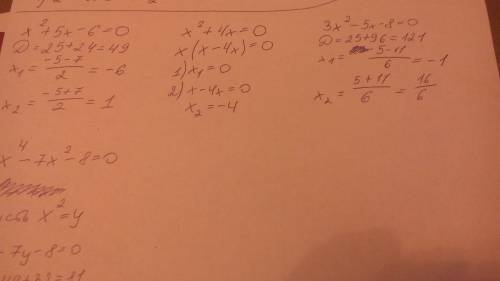 x²+5x-6=0
D=25+24=49
x₁=(-5-7)/2=-6
x₂=(-5+7)/2=1
x²+4x=0
x(x-4x)=0
1) x₁=0
2) x-4x=0
x₂=-4
3x²-5x-8=0
D=25+96=121
x₁=(5-11)/6=-1
x₂=(5+11)/6=16/6
x⁴-7x²-8=0
x²=y
-7y-8=0